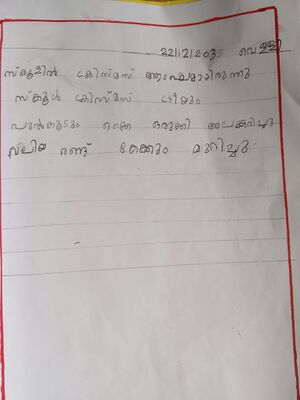 22/12/2023 വെള്ളി
സ്കൂളിൽ ക്രിസ്മസ് ആഘോഷമായിരുന്നു
സ്കൂൾ ക്രിസ്മസ് ട്രീയും
പുൽകൂടും ഒക്കെ ഒരുക്കി അലങ്കരിച്ചു
വലിയ രണ്ട് കേക്കും മുറിച്ചു.